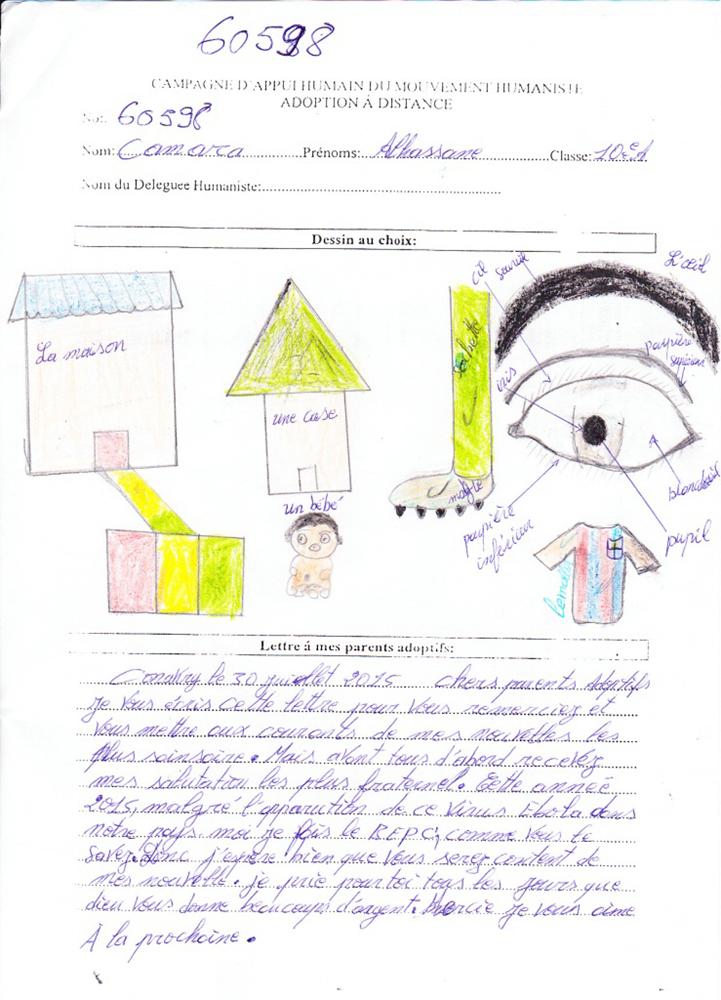 60598
CAMPAGNE D'APPUI HUMAIN DU MOUVEMENT HUMANISTE
ADOPTION Á DISTANCE
No:. 60598
Nom: Camara Prénoms: Alhassane Classe: 10e A
Nom du Deleguee Humaniste:
Dessin au choix:
L'œil
cil
sourcil
La maison
paupière supérieur
iris
une case
un bébé
paupière inférieur
pupil
Lettre á mes parents adoptifs:
Conakry le 30 juillet 2015 chers parents Adoptifs
je vous écris cette lettre pour vous remerciez et
vous mettre aux courants de mes nouvelles les
plus sainsaire. Mais avant tous d'abord recevez
mes salutation les plus fraternel. Cette année
2015, malgré l'apparution de ce Virus Ebola dans
notre pays moi je fais le BEPC, comme vous le
savez. Donc j'espère bien que vous serez content de
mes nouvelle. je prie pour toi tous les jours que
dieu vous donne beaucoups d'argent. Mercie je vous aime
À la prochaine.